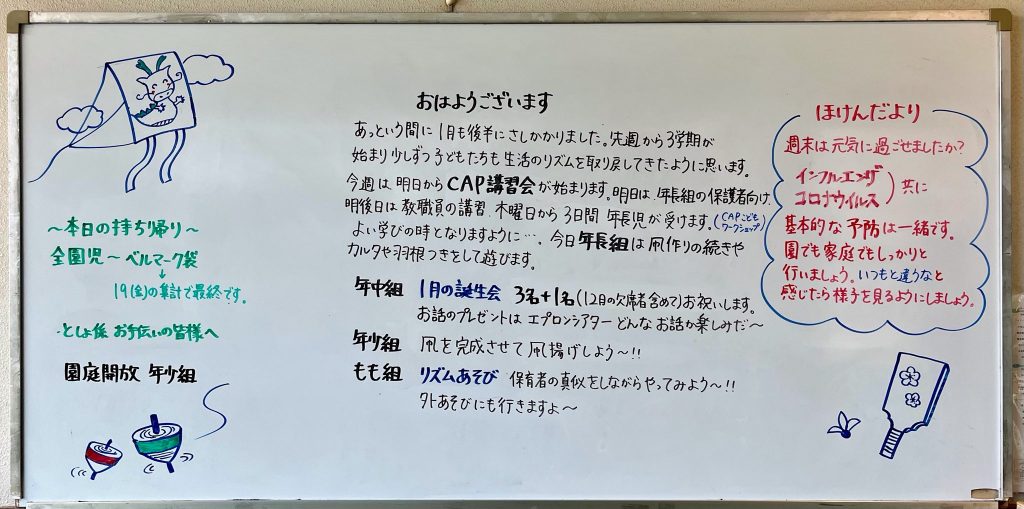 おはようございます
あっという間に1月も後半にさしかかりました。先週から3学期が
始まり少しずつ子どもたちも生活のリズムを取り戻してきたように思います。
今週は明日からCAP講習会が始まります。明日は、年長組の保護者向け、
明後日は教職員の講習、木曜日から3日間 年長児が受けます。(CAPこども
ワークショップ)
よい学びの時となりますように…。今日年長組は凧作りの続きや
カルタや羽根つきをして遊びます。
年中組 1月の誕生会 3名+1名(12月の欠席者含めて)お祝いします。
お話のプレゼントは エプロンシアター どんなお話か楽しみだ〜
年少組 凧を完成させて 凧揚げしよう〜!!
もも組 リズムあそび 保育者の真似をしながらやってみよう〜!!
外あそびにも行きますよ〜
〜本日の持ち帰り〜
全園児〜ベルマーク袋
↓
19(金)の集計で最終です。
としょ係 お手伝いの皆様へ
園庭開放 年少組
ほけんだより
週末は元気に過ごせましたか?
インフルエンザ
コロナウイルス)共に
基本的な予防は一緒です。
園でも家庭でもしっかりと
行いましょう。いつもと違うなと
感じたら様子を見るようにしましょう。